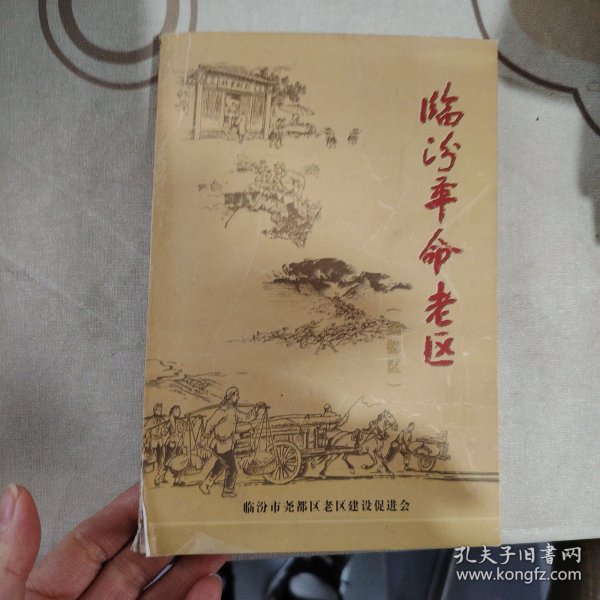 临汾革命老区
(尧都区)
临汾市尧都区老区建设促进会
孔夫子旧书网
www.kongfz.com